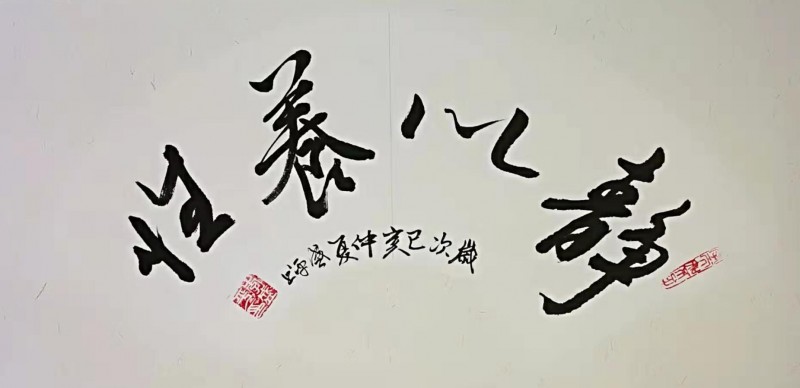 静以养性
岁次己亥仲夏